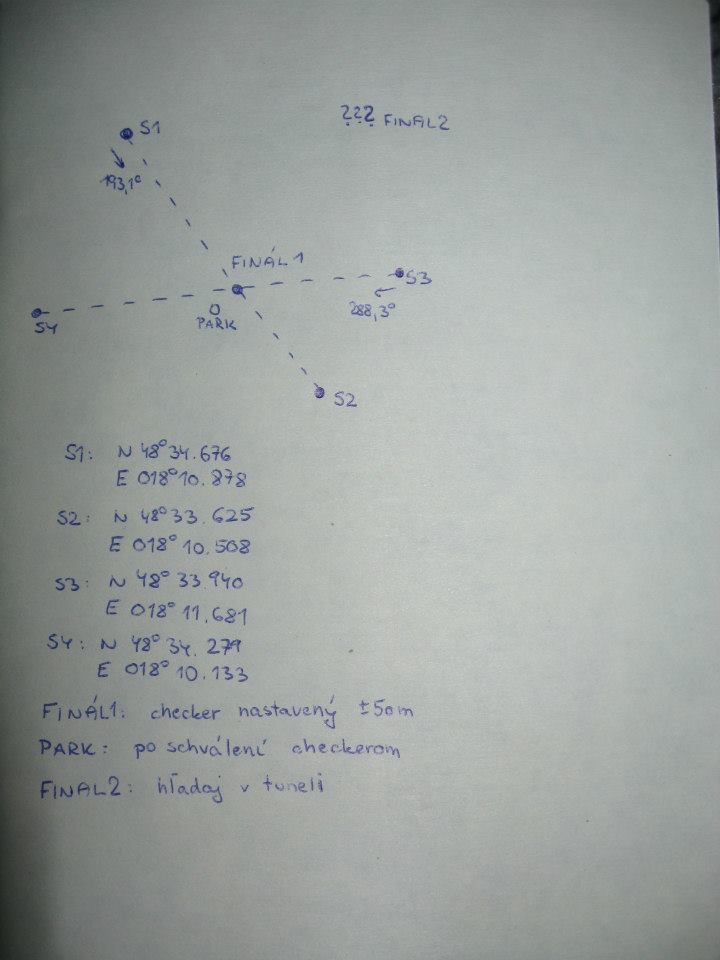 S1
??? FINAL2
193,1°
FINÁL 1
S3
288,3°
S4
PARK
S2
S1: N 48° 34.676
E 018° 10.878
S2: N 48° 33.625
E 018° 10.508
S3: N 48° 33.940
E 018° 11.681
S4: N 48° 34.279
E 018° 10.133
FINÁL1: checker nastavený ±50m
PARK: po schválení checkerom
FINAL2: hľadaj v tuneli